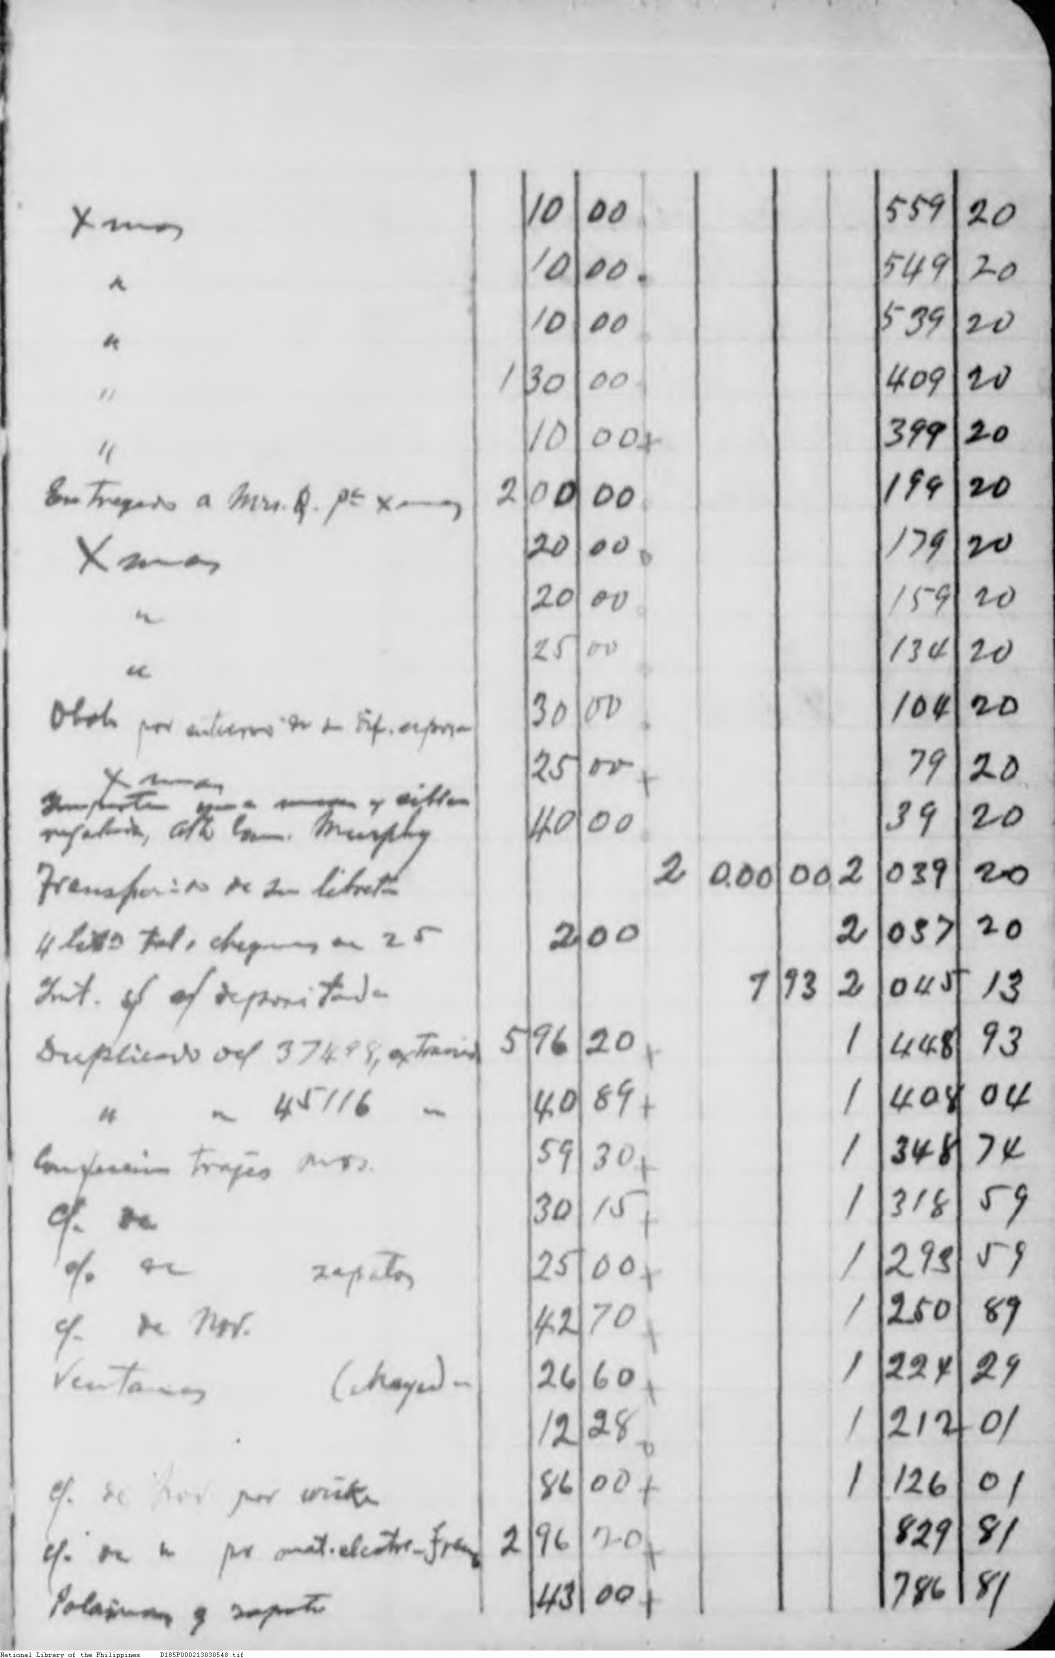 Xmas 10 00 559 20
" 10 00 549 20
" 10 00 539 20
" 130 00 409 20
" 10 00+ 399 20
Entregado a Mrs. Q. pa Xmas 200 00 199 20
Xmas 20 00 179 20
" 20 00 159 20
" 25 00 134 20
por entierro de su dif. esposa 30 00 104 20
Xmas 25 00+ 79 20
una mesa y sillas
regalada, Murphy 40 00 39 20
Transferido de su libreta 2 000 00 2 039 20
4 tal. cheques en 25 2 00 2 037 20
Int. s/ depositada 7 93 2 045 13
Duplicado del 37498, 596 20+ 1 448 93
" " 45116 " 40 89+ 1 408 04
Confeccion trajes 59 30+ 1 348 74
cf. de 30 15+ 1 318 59
cf. de zapatos 25 00+ 1 293 59
cf. de Nov. 42 70+ 1 250 89
Ventanas 26 60+ 1 224 29
12 28 1 212 01
cf. de Nov. por 86 00+ 1 126 01
cf. de " pr mat. electro- 296 20+ 829 81
Polainas y zapato 43 00+ 786 81
National Library of the Philippines D185P000213030548.tif